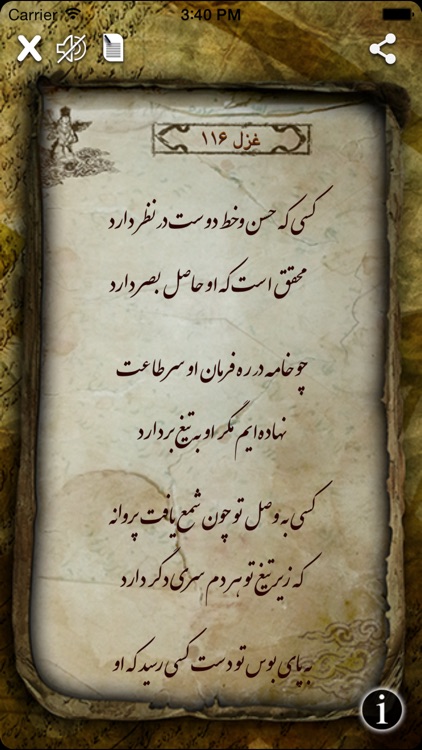 Carrier 3:40 PM
غزل ۱۱۶
کسی که حسن و خط دوست در نظر دارد
محقق است که او حاصل بصر دارد
چو خامه در ره فرمان او سر طاعت
نهاده‌ایم مگر او به تیغ بردارد
کسی به وصل تو چون شمع یافت پروانه
که زیر تیغ تو هر دم سری دگر دارد
به پای بوس تو دست کسی رسید که او